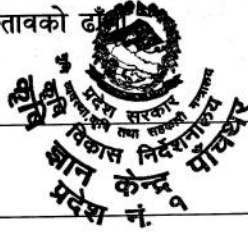 तावको ढाँचा
प्रदेश सरकार
व्यवस्था, कृषि तथा सहकारी मन्त्रालय
कृषि विकास निर्देशनालय
कृषि ज्ञान केन्द्र पाँचथर
प्रदेश नं. १